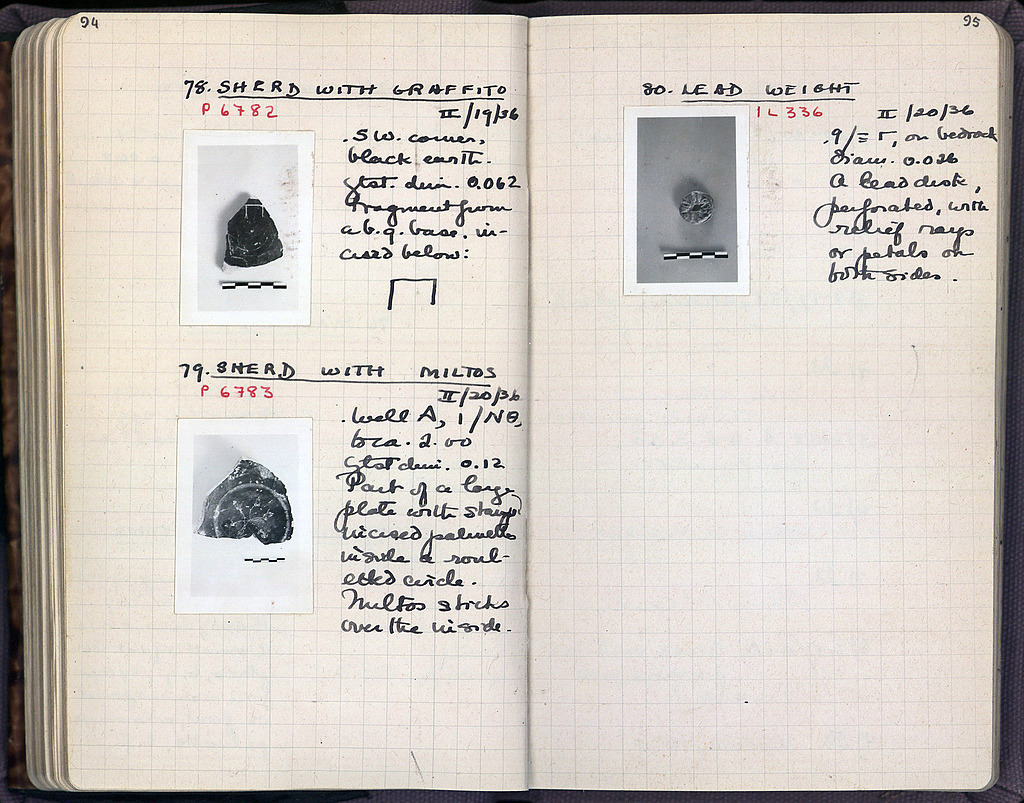 94
78. SHERD WITH GRAFFITO
P 6782
II/19/36
. SW. corner,
black earth.
gtst. dim. 0.062
Fragment from
a b.g. base, in-
cised below:
79. SHERD WITH MILTOS
P 6783
II/20/36
. Well A, 1/ΝΘ,
to ca. 2.00
gtst dim. 0.12
Part of a large
plate with stamped
incised palmettes
inside a roul-
etted circle.
Miltos sticks
over the inside.
95
80. LEAD WEIGHT
IL 336
II/20/36
. 9/Ξ Γ, on bedrock
diam. 0.026
A lead disk,
perforated, with
relief rays
or petals on
both sides.